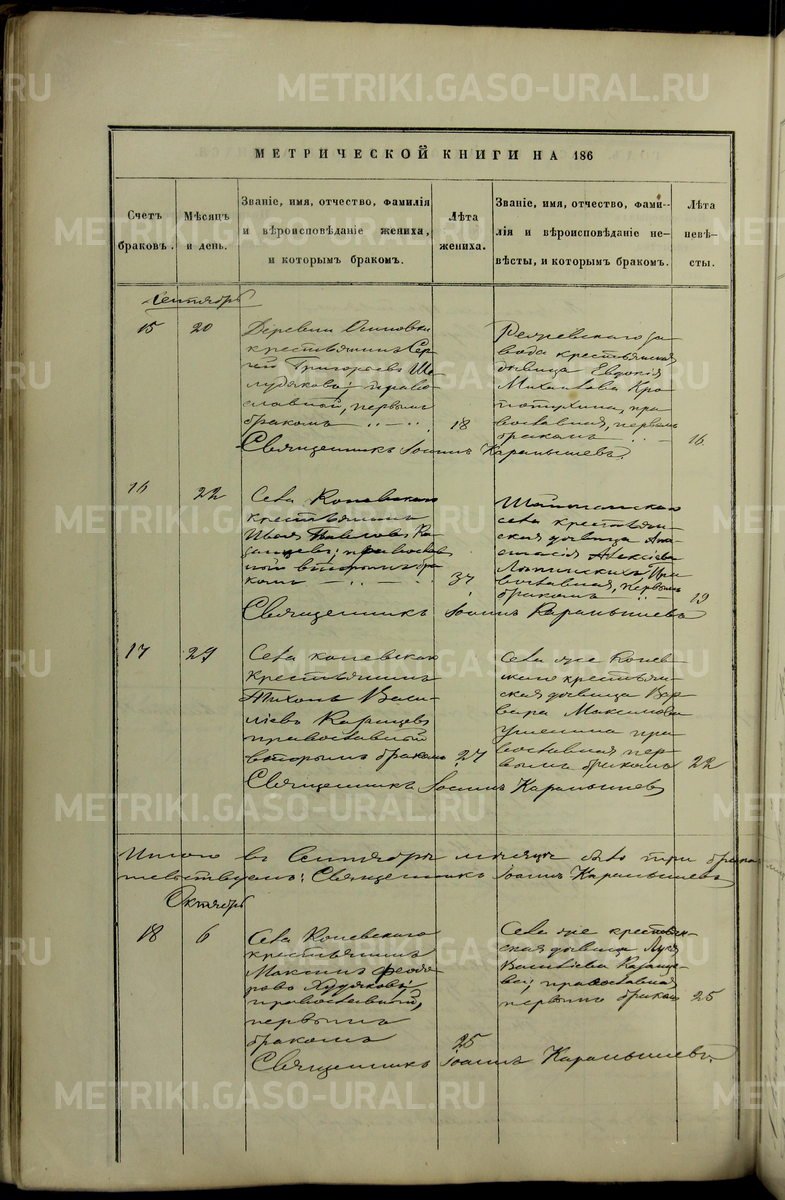 METRIKI.GASO-URAL.RU
МЕТРИЧЕСКОЙ КНИГИ НА 186
Счетъ
браковъ.
Мѣсяцъ
и день.
Званіе, имя, отчество, фамилія
и вѣроисповѣданіе жениха,
и которымъ бракомъ.
Лѣта
жениха.
Званіе, имя, отчество, фами-
лія и вѣроисповѣданіе не-
вѣсты, и которымъ бракомъ.
Лѣта
невѣ-
сты.
Сентябрь
15
20
Деревни Осиновки
крестьянинъ Сер-
гій Григорьевъ Ше-
лудяковъ; право-
славной, первымъ
бракомъ
18
завода крестьянская
дѣвица Евдокія
Михайлова Кро-
потухина, пра-
вославная, первымъ
бракомъ
16
Священникъ Іоаннъ Карамышевъ
16
22
Села Коневского
крестьянинъ
Павловъ Ка-
занцевъ; православ
ной вторымъ бра-
комъ
37
села крестьян-
ская дѣвица Ана-
стасія Алексіева
Пра-
вославная, первымъ
бракомъ
19
Священникъ Іоаннъ Карамышевъ
17
29
Села Коневского
крестьянинъ
Тихонъ Васи-
ліевъ Казанцевъ
православной
вторымъ бракомъ
27
Села же Конев-
ского крестьян-
ская дѣвица Вар-
вара Максимова
пра-
вославная пер-
вымъ бракомъ
22
Священникъ Іоаннъ Карамышевъ
Итого въ Сентябрѣ мѣсяцѣ было три брака
Священникъ Іоаннъ Карамышевъ
Октябрь
18
6
Села Коневского
крестьянинъ
Максимъ Феодо-
ровъ Худяковъ;
православной,
первымъ
бракомъ
25
Села же крестьян-
ская дѣвица Лукія
Василіева Казанце-
ва; православная
первымъ бракомъ
25
Священникъ Іоаннъ Карамышевъ.